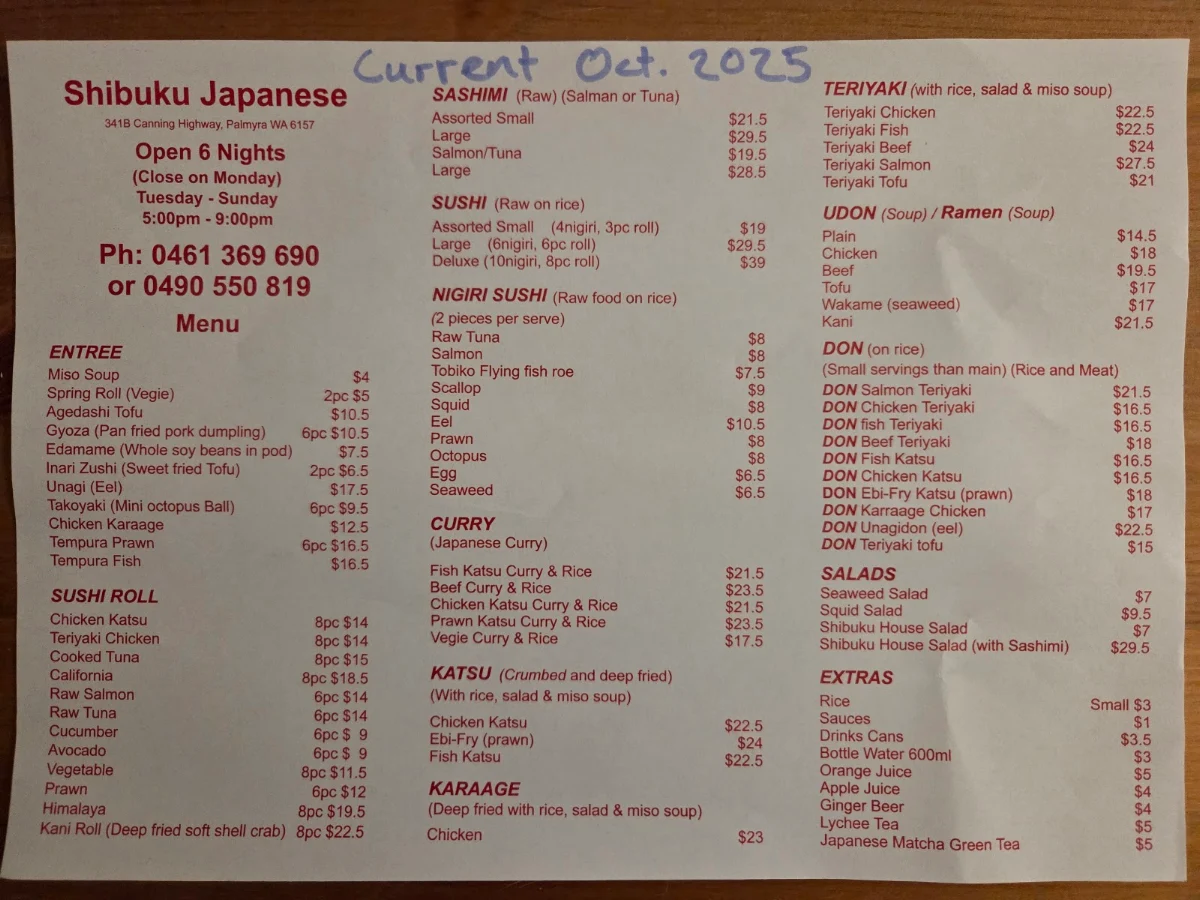 Current Oct. 2025
Shibuku Japanese
341B Canning Highway, Palmyra WA 6157
Open 6 Nights
(Close on Monday)
Tuesday - Sunday
5:00pm - 9:00pm
Ph: 0461 369 690
or 0490 550 819
Menu
ENTREE
Miso Soup $4
Spring Roll (Vegie) 2pc $5
Agedashi Tofu $10.5
Gyoza (Pan fried pork dumpling) 6pc $10.5
Edamame (Whole soy beans in pod) $7.5
Inari Zushi (Sweet fried Tofu) 2pc $6.5
Unagi (Eel) $17.5
Takoyaki (Mini octopus Ball) 6pc $9.5
Chicken Karaage $12.5
Tempura Prawn 6pc $16.5
Tempura Fish $16.5
SUSHI ROLL
Chicken Katsu 8pc $14
Teriyaki Chicken 8pc $14
Cooked Tuna 8pc $15
California 8pc $18.5
Raw Salmon 6pc $14
Raw Tuna 6pc $14
Cucumber 6pc $ 9
Avocado 6pc $ 9
Vegetable 8pc $11.5
Prawn 6pc $12
Himalaya 8pc $19.5
Kani Roll (Deep fried soft shell crab) 8pc $22.5
SASHIMI (Raw) (Salman or Tuna)
Assorted Small $21.5
Large $29.5
Salmon/Tuna $19.5
Large $28.5
SUSHI (Raw on rice)
Assorted Small (4nigiri, 3pc roll) $19
Large (6nigiri, 6pc roll) $29.5
Deluxe (10nigiri, 8pc roll) $39
NIGIRI SUSHI (Raw food on rice)
(2 pieces per serve)
Raw Tuna $8
Salmon $8
Tobiko Flying fish roe $7.5
Scallop $9
Squid $8
Eel $10.5
Prawn $8
Octopus $8
Egg $6.5
Seaweed $6.5
CURRY
(Japanese Curry)
Fish Katsu Curry & Rice $21.5
Beef Curry & Rice $23.5
Chicken Katsu Curry & Rice $21.5
Prawn Katsu Curry & Rice $23.5
Vegie Curry & Rice $17.5
KATSU (Crumbed and deep fried)
(With rice, salad & miso soup)
Chicken Katsu $22.5
Ebi-Fry (prawn) $24
Fish Katsu $22.5
KARAAGE
(Deep fried with rice, salad & miso soup)
Chicken $23
TERIYAKI (with rice, salad & miso soup)
Teriyaki Chicken $22.5
Teriyaki Fish $22.5
Teriyaki Beef $24
Teriyaki Salmon $27.5
Teriyaki Tofu $21
UDON (Soup) / Ramen (Soup)
Plain $14.5
Chicken $18
Beef $19.5
Tofu $17
Wakame (seaweed) $17
Kani $21.5
DON (on rice)
(Small servings than main) (Rice and Meat)
DON Salmon Teriyaki $21.5
DON Chicken Teriyaki $16.5
DON fish Teriyaki $16.5
DON Beef Teriyaki $18
DON Fish Katsu $16.5
DON Chicken Katsu $16.5
DON Ebi-Fry Katsu (prawn) $18
DON Karraage Chicken $17
DON Unagidon (eel) $22.5
DON Teriyaki tofu $15
SALADS
Seaweed Salad $7
Squid Salad $9.5
Shibuku House Salad $7
Shibuku House Salad (with Sashimi) $29.5
EXTRAS
Rice Small $3
Sauces $1
Drinks Cans $3.5
Bottle Water 600ml $3
Orange Juice $5
Apple Juice $4
Ginger Beer $4
Lychee Tea $5
Japanese Matcha Green Tea $5